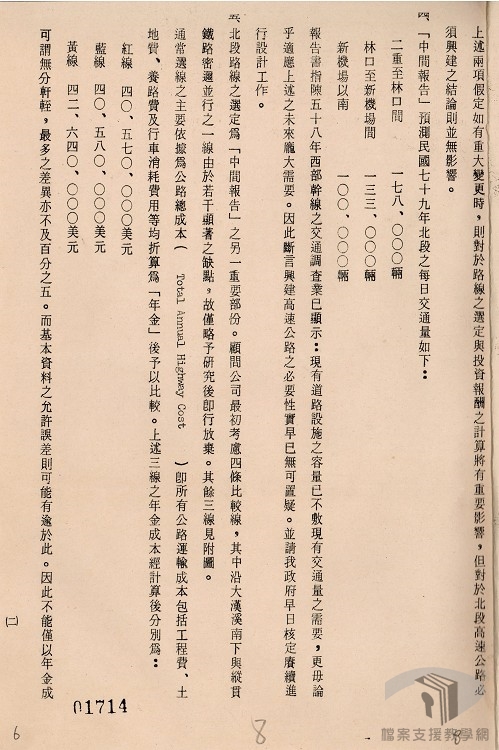 上述兩項假定如有重大變更時，則對於路線之選定與投資報酬之計算將有重要影響，但對於北段高速公路必
須興建之結論則並無影響。
四 「中間報告」預測民國七十九年北段之每日交通量如下：
二重至林口間 一七八、〇〇〇輛
林口至新機場間 一三三、〇〇〇輛
新機場以南 一〇〇、〇〇〇輛
報告書指陳五十八年西部幹線之交通調查業已顯示：現有道路設施之容量已不敷現有交通量之需要，更毋論
乎適應上述之未來龐大需要。因此斷言興建高速公路之必要性實早已無可置疑。並請我政府早日核定賡續進
行設計工作。
五 北段路線之選定爲「中間報告」之另一重要部份。顧問公司最初考慮四條比較線，其中沿大漢溪南下與縱貫
鐵路密邇並行之一線由於若干顯著之缺點，故僅略予研究後卽行放棄。其餘三線見附圖。
通常選線之主要依據爲公路總成本（ Total Annual Highway Cost ）卽所有公路運輸成本包括工程費、土
地費、養路費及行車消耗費用等均折算爲「年金」後予以比較。上述三線之年金成本經計算後分別爲：
紅線 四〇、五七〇、〇〇〇美元
藍線 四〇、五八〇、〇〇〇美元
黃線 四二、六四〇、〇〇〇美元
可謂無分軒輊，最多之差異亦不及百分之五。而基本資料之允許誤差則可能有逾於此。因此不能僅以年金成
(二)
01714
6
8
8
檔案支援教學網